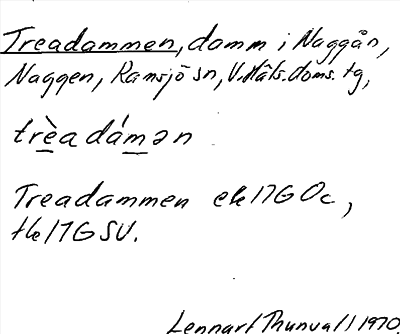 Treadammen, damm i Naggån,
Naggen, Ramsjö sn, V.Häls.doms.tg,
trèadámən
Treadammen ek 17G Oc,
tk 17G SV.
Lennart Thunvall 1970.